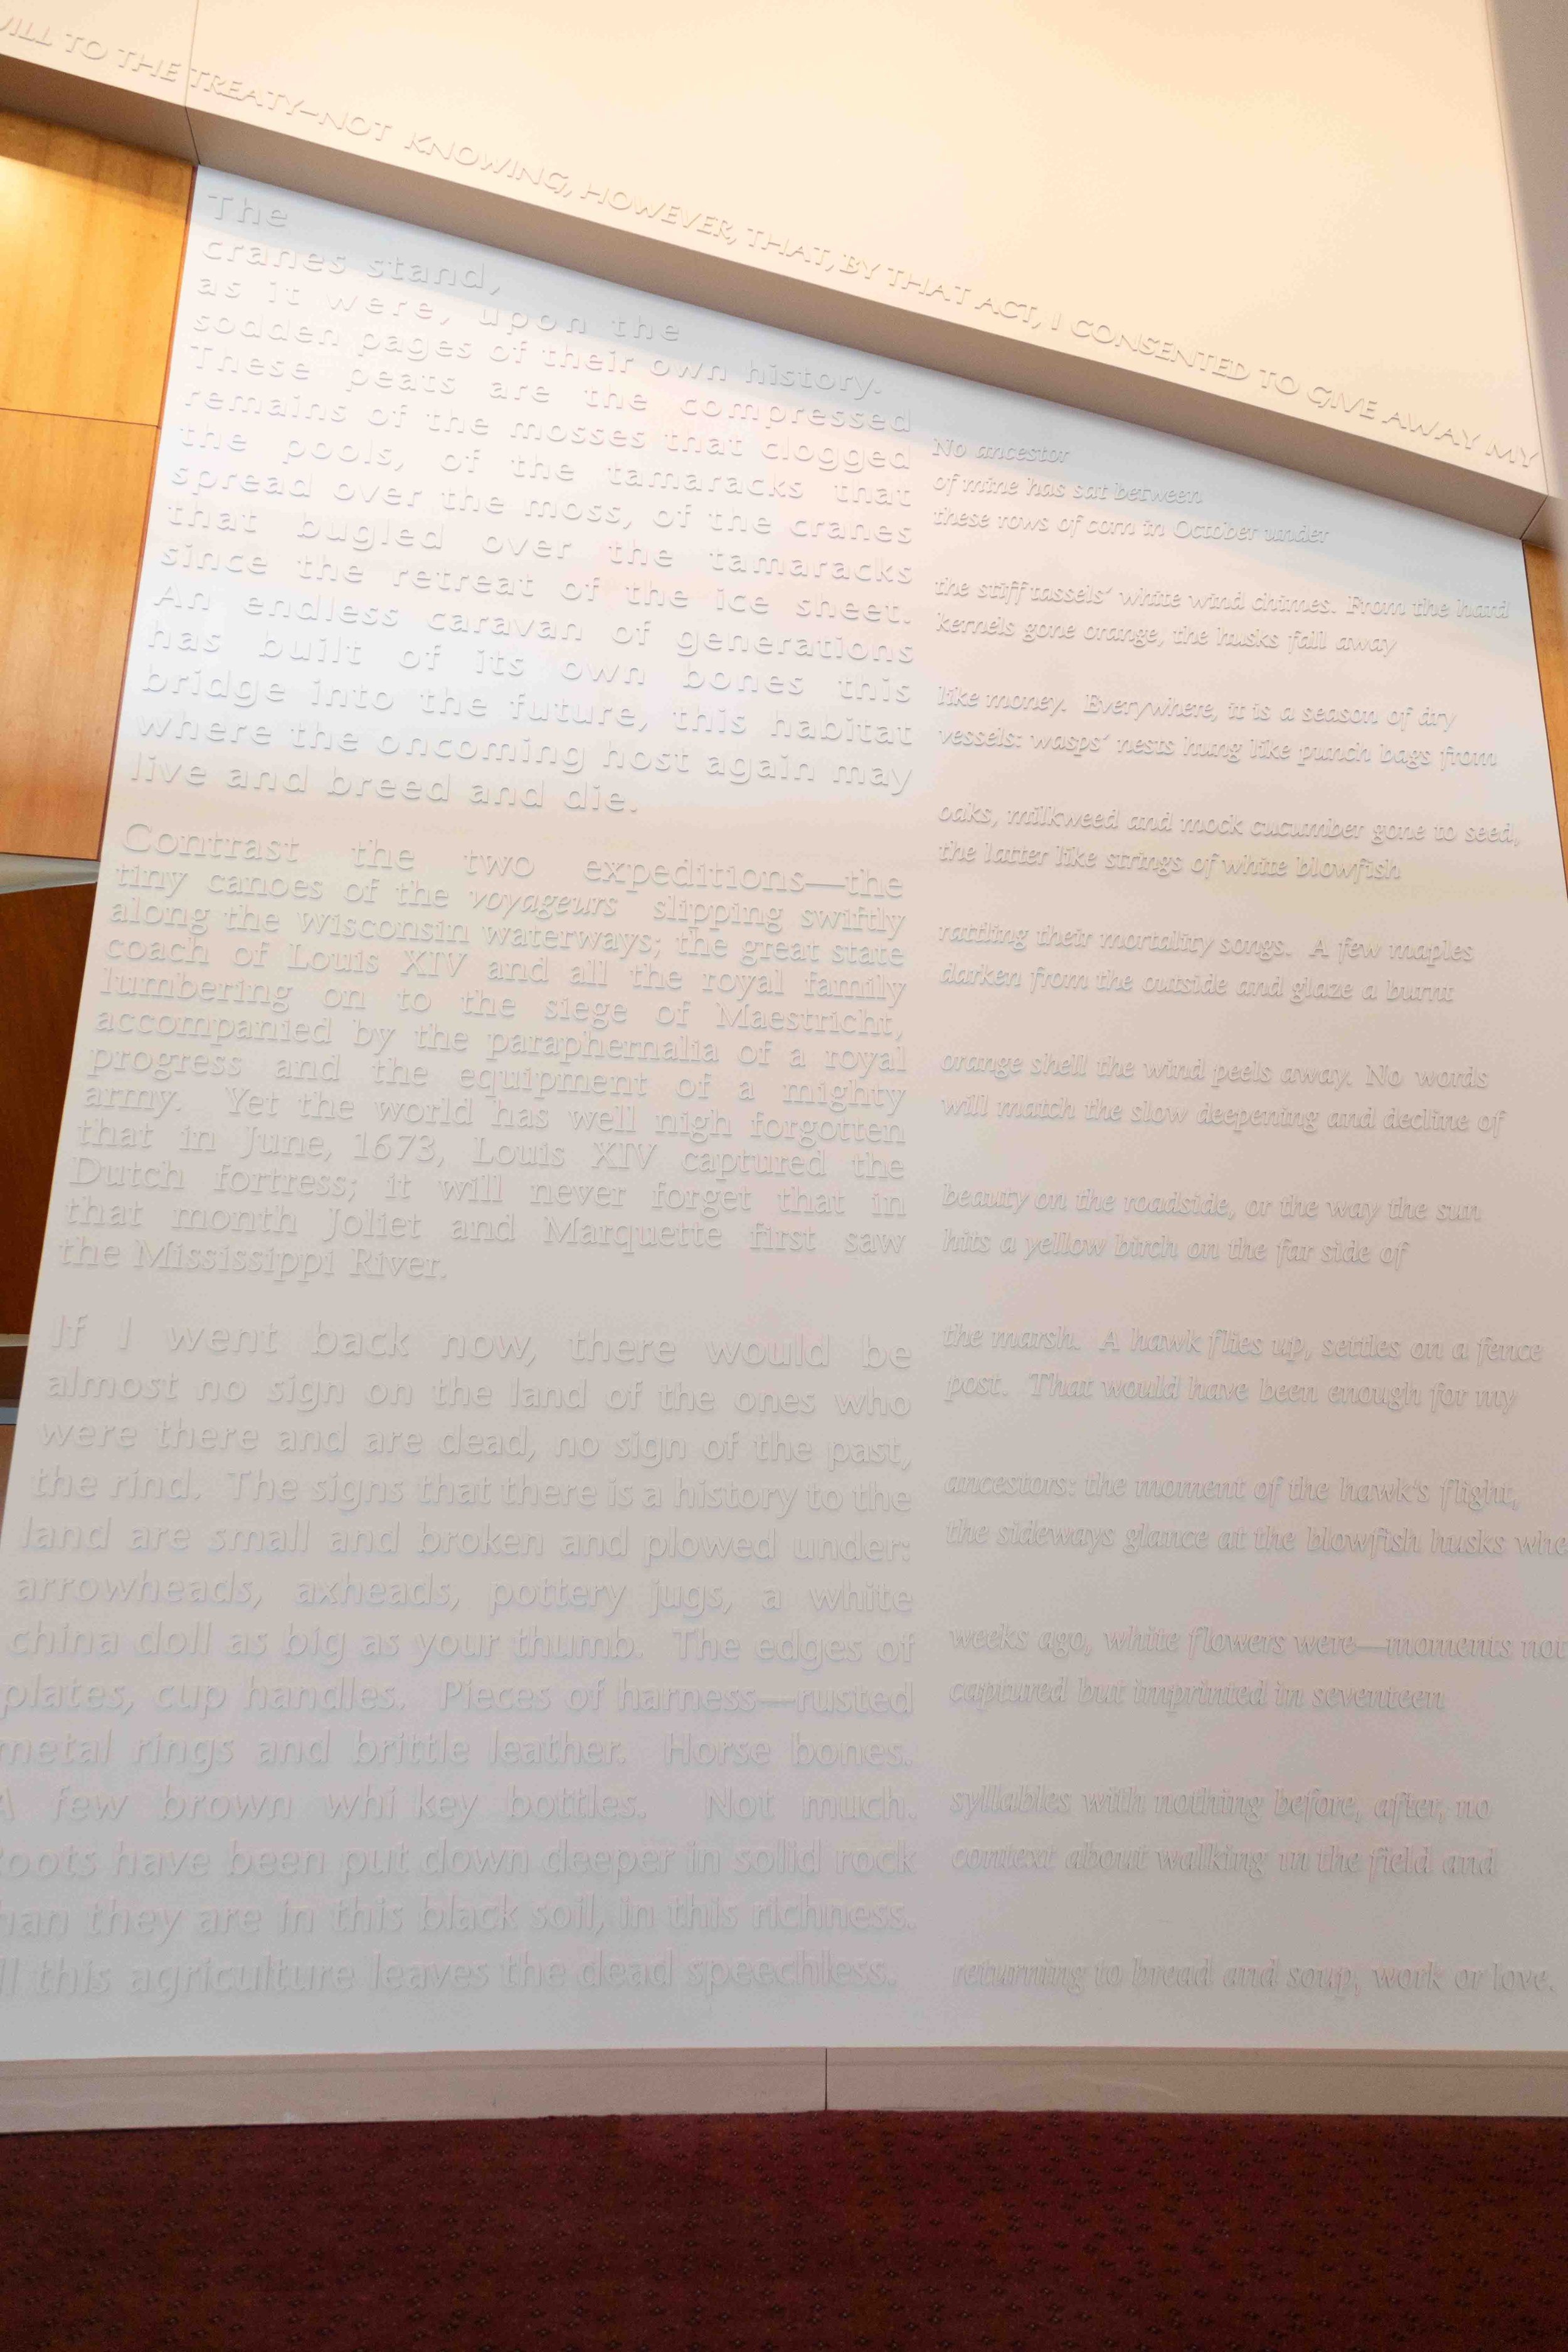 WILL TO THE TREATY—NOT KNOWING, HOWEVER, THAT, BY THAT ACT, I CONSENTED TO GIVE AWAY MY
The
cranes stand,
as it were, upon the
sodden pages of their own history.
These peats are the compressed
remains of the mosses that clogged
the pools, of the tamaracks that
spread over the moss, of the cranes
that bugled over the tamaracks
since the retreat of the ice sheet.
An endless caravan of generations
has built of its own bones this
bridge into the future, this habitat
where the oncoming host again may
live and breed and die.
Contrast the two expeditions—the
tiny canoes of the voyageurs slipping swiftly
along the Wisconsin waterways; the great state
coach of Louis XIV and all the royal family
lumbering on to the siege of Maestricht,
accompanied by the paraphernalia of a royal
progress and the equipment of a mighty
army. Yet the world has well nigh forgotten
that in June, 1673, Louis XIV captured the
Dutch fortress; it will never forget that in
that month Joliet and Marquette first saw
the Mississippi River.
If I went back now, there would be
almost no sign on the land of the ones who
were there and are dead, no sign of the past,
the rind. The signs that there is a history to the
land are small and broken and plowed under:
arrowheads, axheads, pottery jugs, a white
china doll as big as your thumb. The edges of
plates, cup handles. Pieces of harness—rusted
metal rings and brittle leather. Horse bones.
A few brown whi key bottles. Not much.
oots have been put down deeper in solid rock
han they are in this black soil, in this richness.
ll this agriculture leaves the dead speechless.
No ancestor
of mine has sat between
these rows of corn in October under
the stiff tassels' white wind chimes. From the hard
kernels gone orange, the husks fall away
like money. Everywhere, it is a season of dry
vessels: wasps' nests hung like punch bags from
oaks, milkweed and mock cucumber gone to seed,
the latter like strings of white blowfish
rattling their mortality songs. A few maples
darken from the outside and glaze a burnt
orange shell the wind peels away. No words
will match the slow deepening and decline of
beauty on the roadside, or the way the sun
hits a yellow birch on the far side of
the marsh. A hawk flies up, settles on a fence
post. That would have been enough for my
ancestors: the moment of the hawk's flight,
the sideways glance at the blowfish husks whe
weeks ago, white flowers were—moments not
captured but imprinted in seventeen
syllables with nothing before, after, no
context about walking in the field and
returning to bread and soup, work or love.